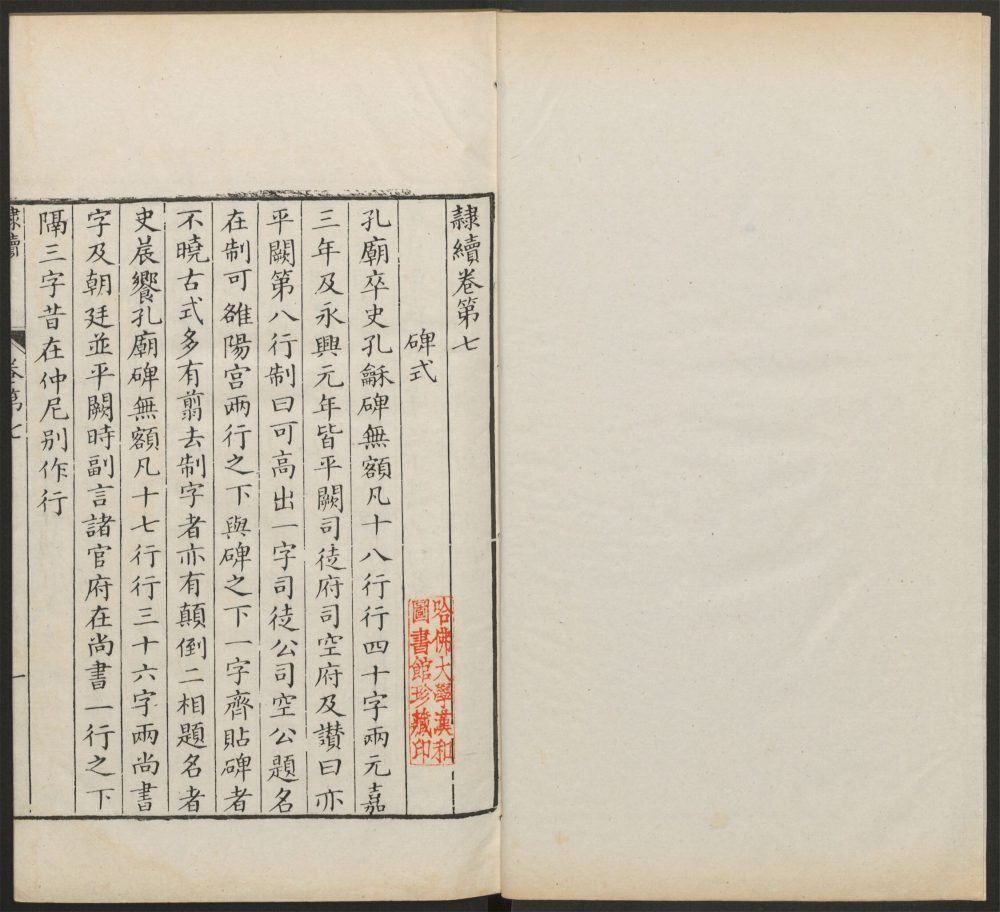 隷續卷第七
碑式
孔廟卒史孔龢碑無額凡十八行行四十字兩元嘉
三年及永興元年皆平闕司徒府司空府及讚曰亦
平闕第八行制曰可高出一字司徒公司空公題名
在制可雒陽宮兩行之下與碑之下一字齊貼碑者
不曉古式多有翦去制字者亦有顛倒二相題名者
史晨饗孔廟碑無額凡十七行行三十六字兩尚書
字及朝廷並平闕時副言諸官府在尚書一行之下
隔三字昔在仲尼别作行
隷續
卷第七
一
哈佛大學漢和
圖書館珍藏印